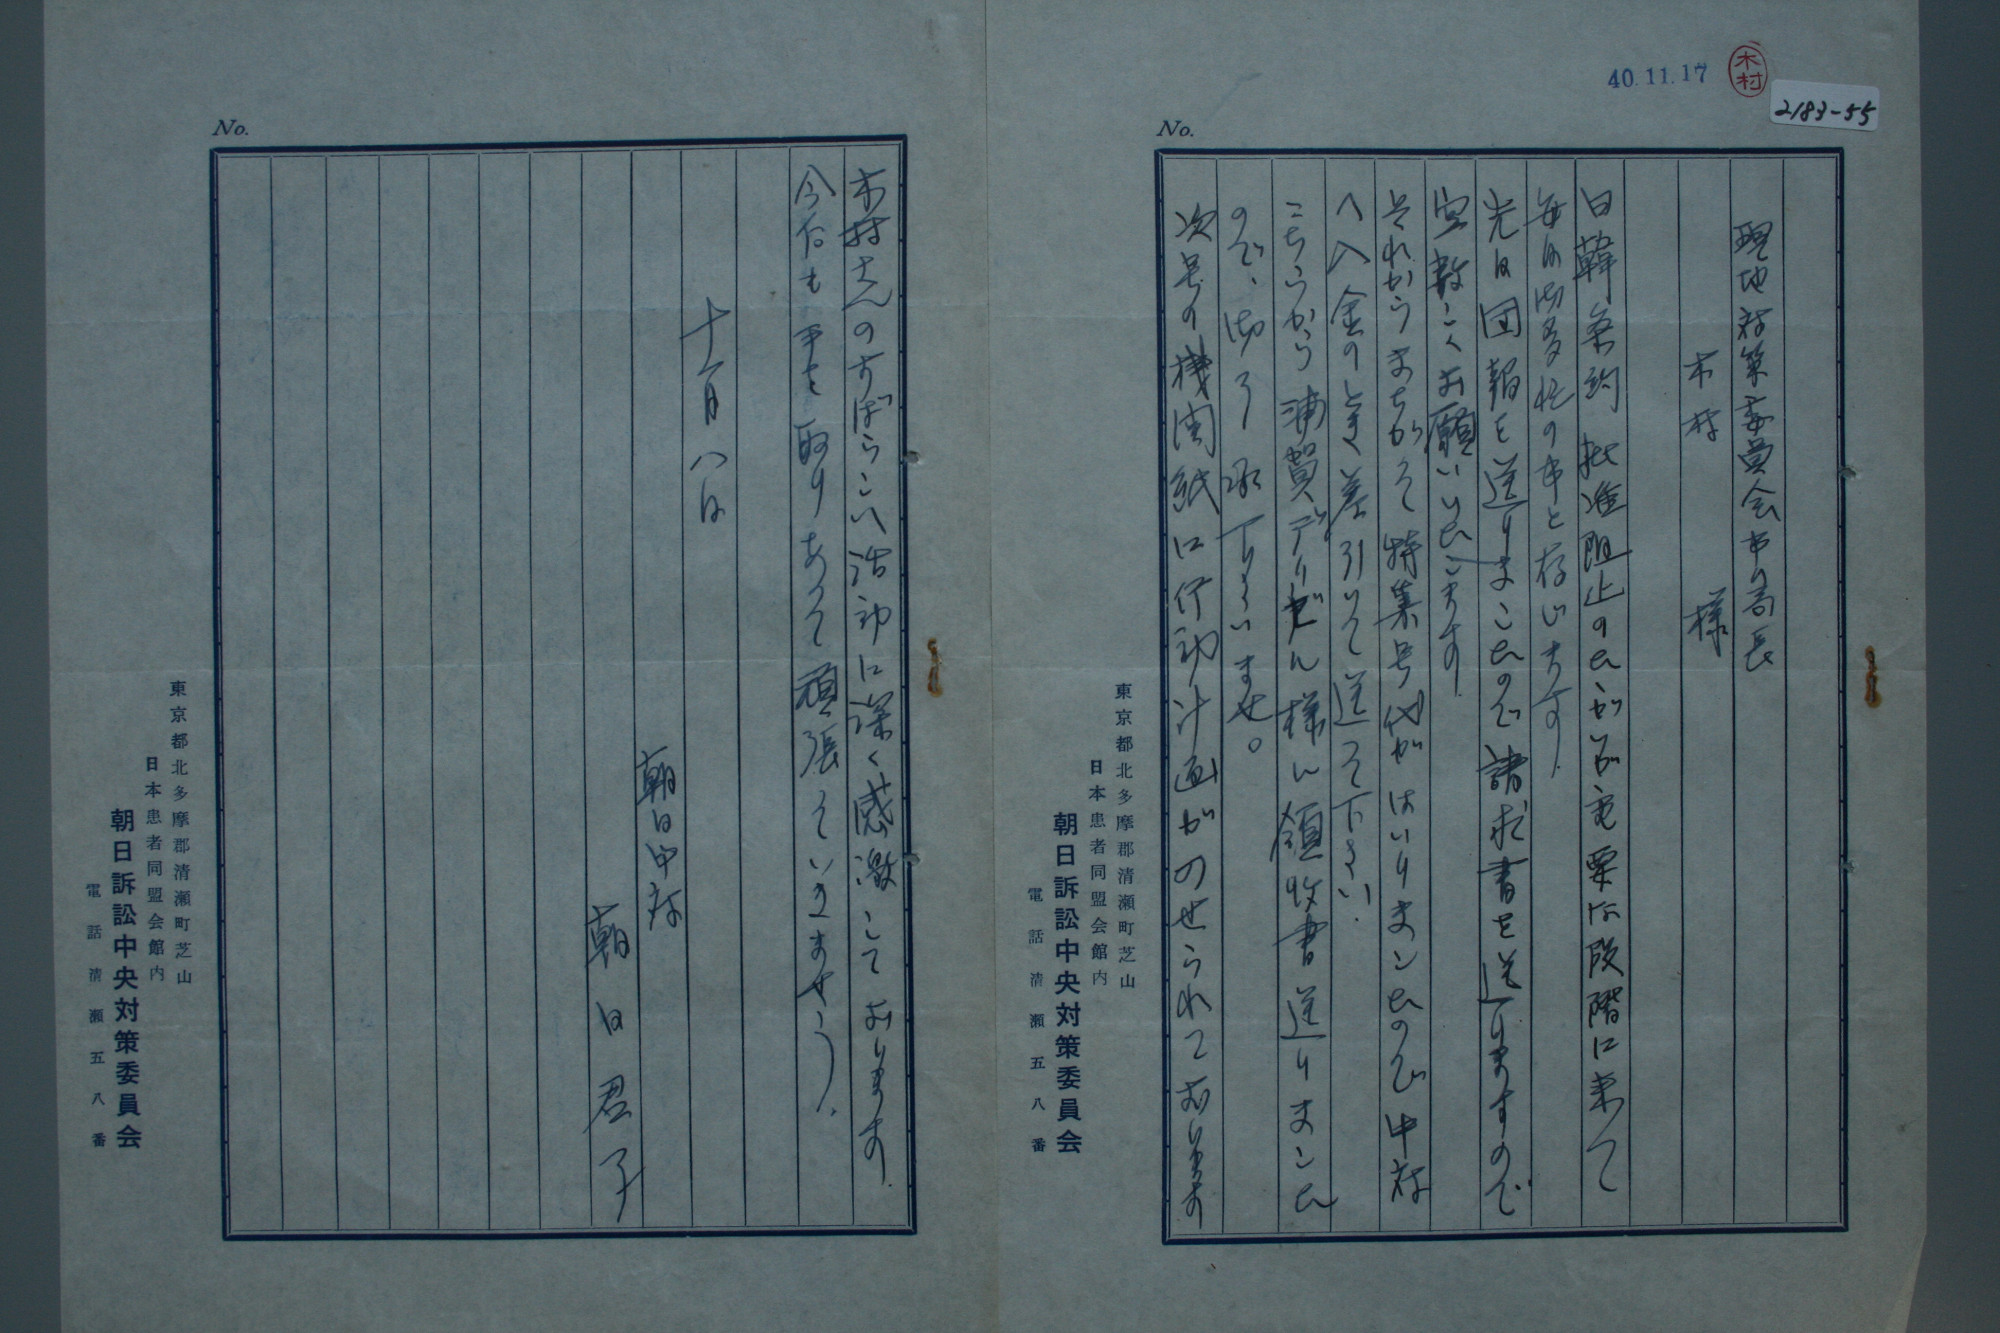 40.11.17
木村
2183-55
No.
現地対策委員会事ム局長
木村 様
日韓条約批准阻止のたゝかいが重要な段階に来て
毎日御多忙の事と存じます．
先日団報を送りましたので請求書を送りますので
宜敷くお願いいたします．
それからまちがって特集号代がはいりましたので中対
へ入金のとき差引いて送って下さい．
こちらから浦賀デリダン様に領収書送りました
ので、御了承下さいませ。
次号の機関紙に行動計画がのせられております
東京都北多摩郡清瀬町芝山
日本患者同盟会館内
朝日訴訟中央対策委員会
電話清瀬五八番
No.
木村さんのすばらしい活動に深く感激しております．
今后も手を取りあって頑張っていきませう．
十一月八日
朝日中対
朝日君子
東京都北多摩郡清瀬町芝山
日本患者同盟会館内
朝日訴訟中央対策委員会
電話清瀬五八番